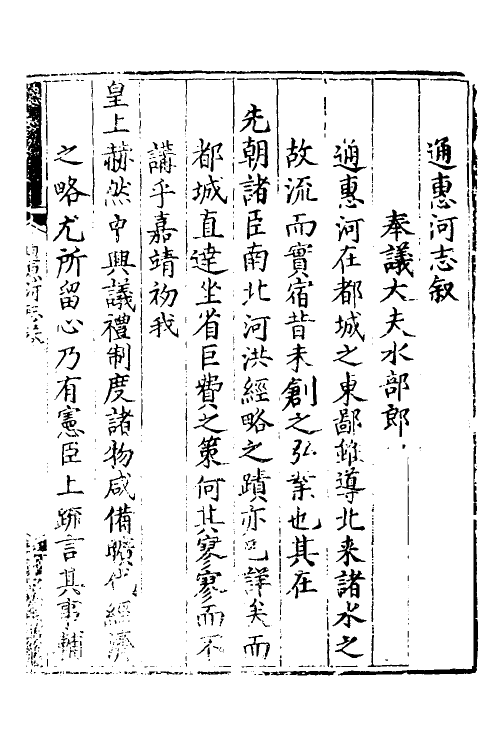 通惠河志叙
奉議大夫水部郎
通惠河在都城之東鄙雖導北来諸水之
故流而實宿昔未創之弘業也其在
先朝諸臣南北河洪經略之蹟亦已詳矣而
都城直達坐省巨費之策何其寥寥而不
講乎嘉靖初我
皇上赫然中興議禮制度諸物咸備曠代經濟
之略尤所留心乃有憲臣上疏言其事輔